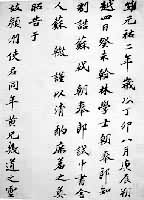 維元祐二年歲次丁卯八月庚辰朔
越四日癸未翰林學士朝奉郎知
制誥蘇軾朝奉郎試中書舍
人蘇轍謹以清酌庶羞之奠
昭告于
故潁州使君同年黃兄幾道之靈